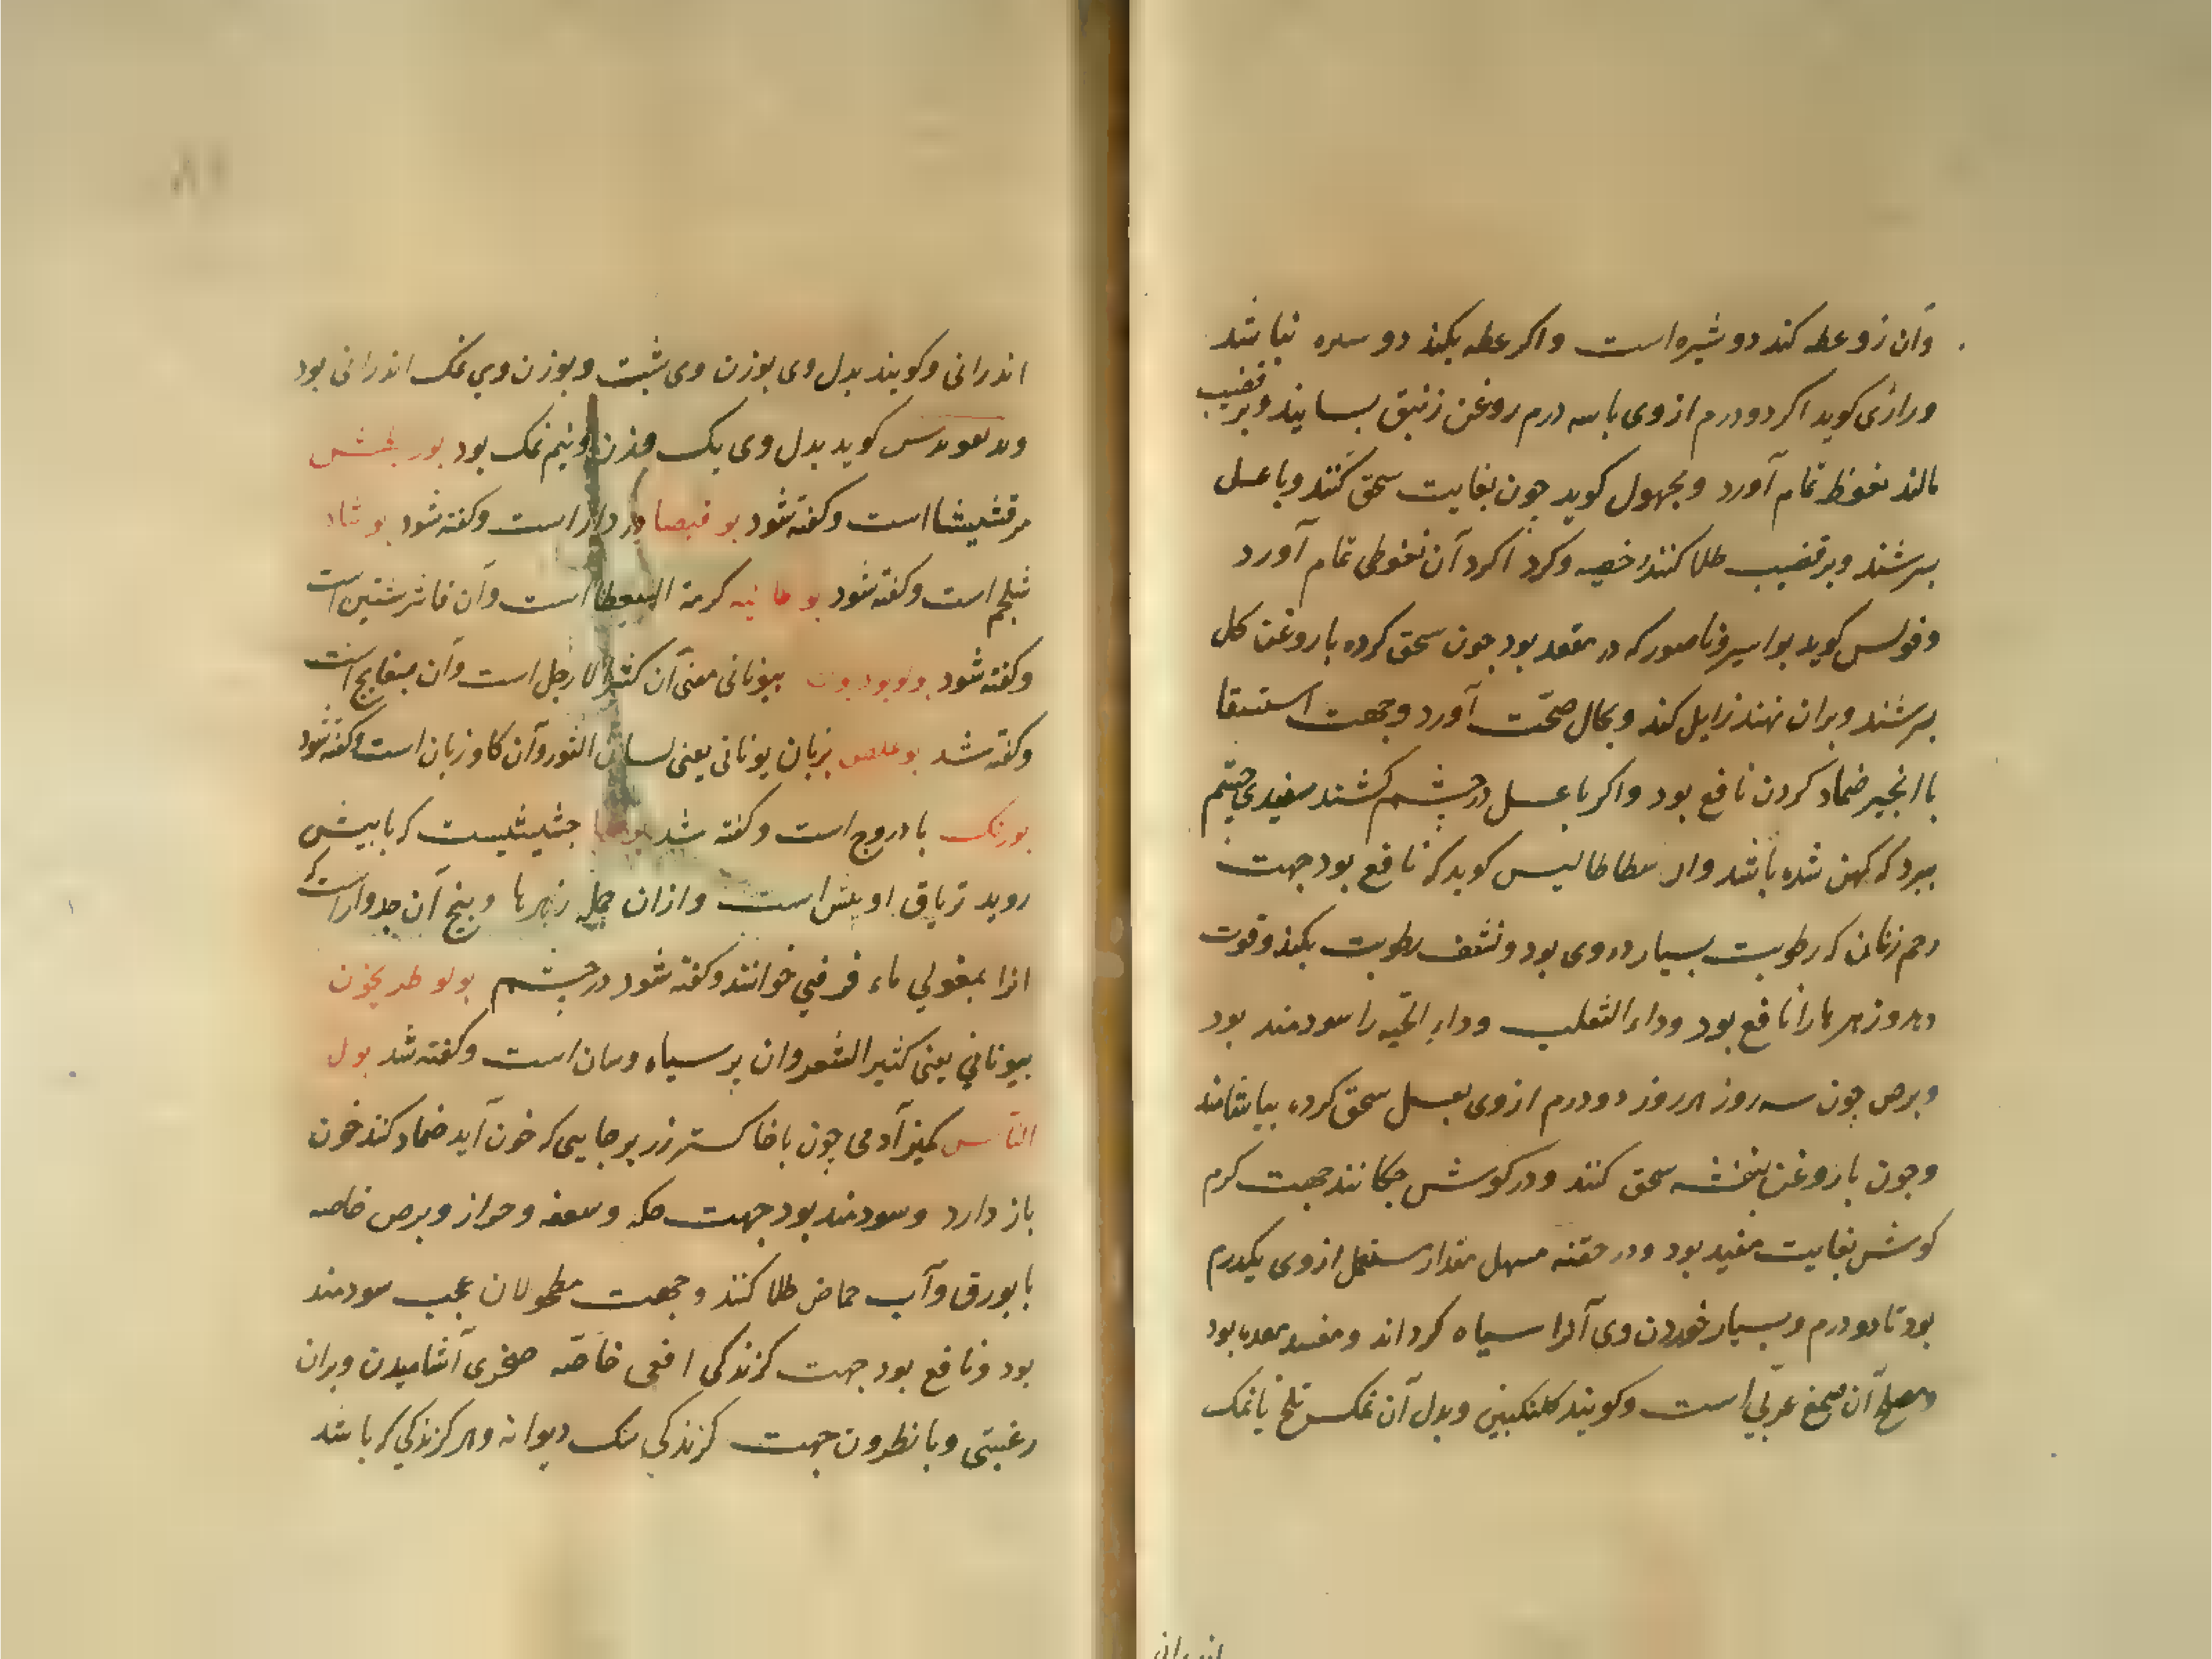 وآن زو عطه کند دوشیزه است واکر عطه نکند دوشیزه نباشد
ورازی کوید اکر دو درم از وی با سه درم روغن زنبق بسایند وبر قضیب
مالند نغوظ تمام آورد ومجهول کوید چون بغایت سحق کنند وبا عسل
بسرشند وبر قضیب طلا کنند وخصیه وکرد اکرد آن نغوظی تمام آورد
وفولس کوید بواسیر وناصور که در مقعد بود چون سحق کرده با روغن کل
بسرشند وبران نهند زایل کند وبحال صحّت آورد وجهت استسقا
با انجیر ضماد کردن نافع بود واکر با عسل در چشم کشند سفیدی چشم
ببرد که کهن شده باشد وارسطاطالیس کوید که نافع بود جهت
رحم زنان که رطوبت بسیار در وی بود ونشف رطوبت بکند وقوت
دهد وزهرها را نافع بود وداء الثعلب وداء الحیّه را سودمند بود
وبرص چون سه روز هر روز دو درم از وی بعسل سحق کرده بیاشامند
وچون با روغن بنفشه سحق کنند ودر کوش چکانند جهت کرم
کوش بغایت مفید بود ودر حقنه مسهل مقدار مستعمل از وی یکدرم
بود تا دو درم وبسیار خوردن وی آنرا سیاه کرداند ومفسد معده بود
ومصلح آن صمغ عربی است وکویند کلنکبین وبدل آن نمک تلخ یا نمک
اندرانی
اندرانی وکویند بدل وی بوزن وی شبت وبوزن وی نمک اندرانی بود
کوید بدل وی یک وزن ونیم نمک بود بور
مرقشیشا است وکفته شود بوقیصا دردار است وکفته شود بوشاد
شلجم است وکفته شود کرمة البیضا است وآن فاشرشتین است
وکفته شود بولوبودیون بیونانی معنی آن کثیر الارجل است وآن بسفایج است
وکفته شد بوغلصن بزبان یونانی یعنی لسان الثور وآن کاوزبان است وکفته شود
بورنک بادروج است وکفته شد بوحا حشیشیست که با بیش
روید تریاق او بیش است وازان جمله زهرها وبیخ آن جدوار است که
انرا بمغولی ماء فرفنی خوانند وکفته شود در چشم بولوطریخون
بیونانی یعنی کثیر الشعر وان پرسیاوسان است وکفته شد بول
النّاس کمیز آدمی چون با خاکستر زر بر جایی که خون آید ضماد کنند خون
باز دارد وسودمند بود جهت حکه وسعفه وحزاز وبرص خاصه
با بورق وآب حماض طلا کنند وجهت مطحولان عجب سودمند
بود ونافع بود جهت کزندکی افعی خاصّه صخری آشامیدن وبران
رغبتی وبا نطرون جهت کزندکی سک دیوانه وهر کزندکی که باشد